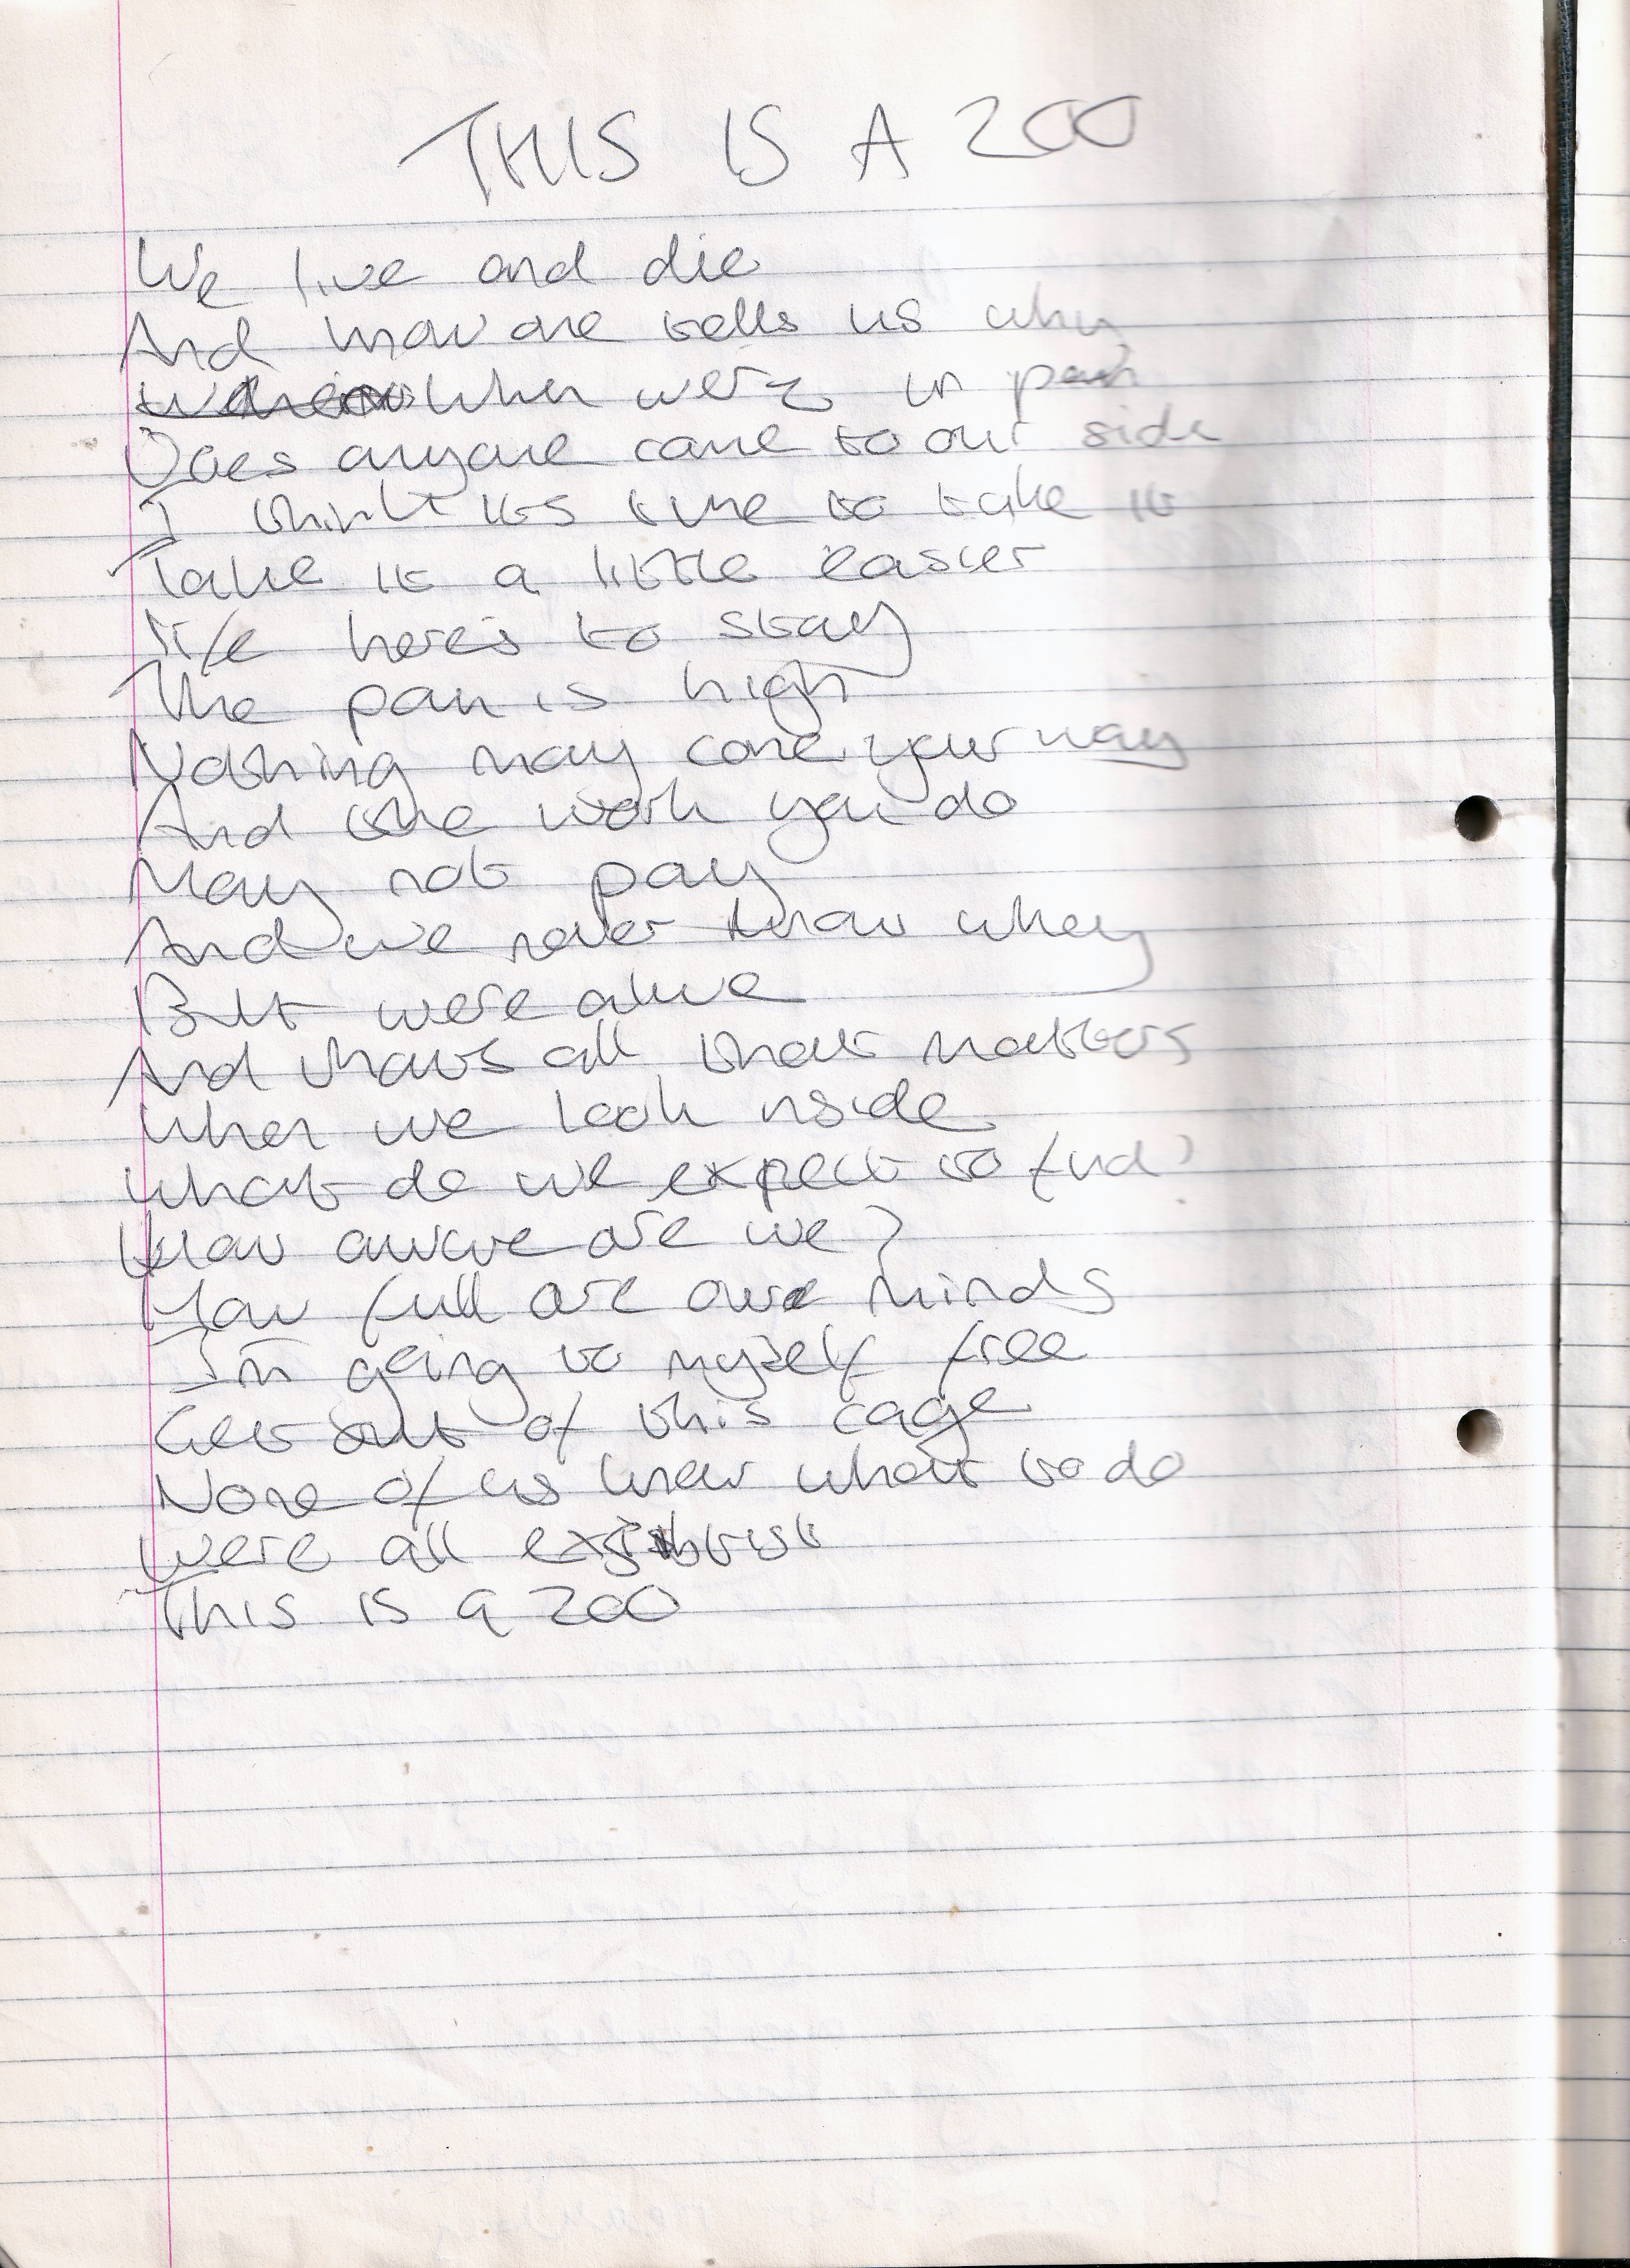 THIS IS A ZOO
We live and die
And now one tells us why
When were in pain
Does anyone come to our side
I think its time to take it
Take it a little easier
life here's to stay
The pain is high
Nothing may come your way
And the work you do
May not pay
And we never know whey
But were alive
And thats all that matters
When we look inside
What do we expect to find?
How aware are we?
How full are our minds
I'm going to myself free
Get out of this cage
None of us know what to do
Were all
This is a ZOO